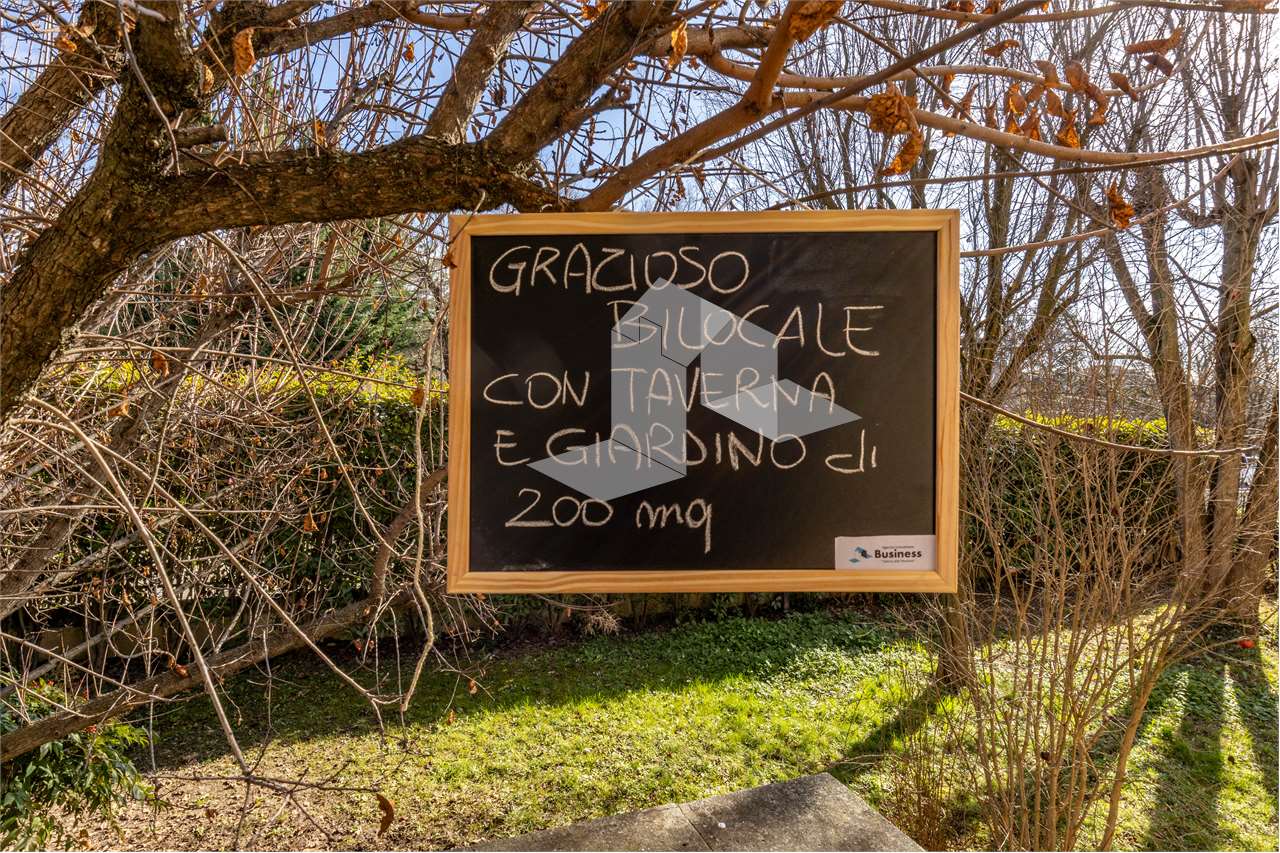 GRAZIOSO
BILOCALE
CON TAVERNA
E GIARDINO di
200 mq
Business